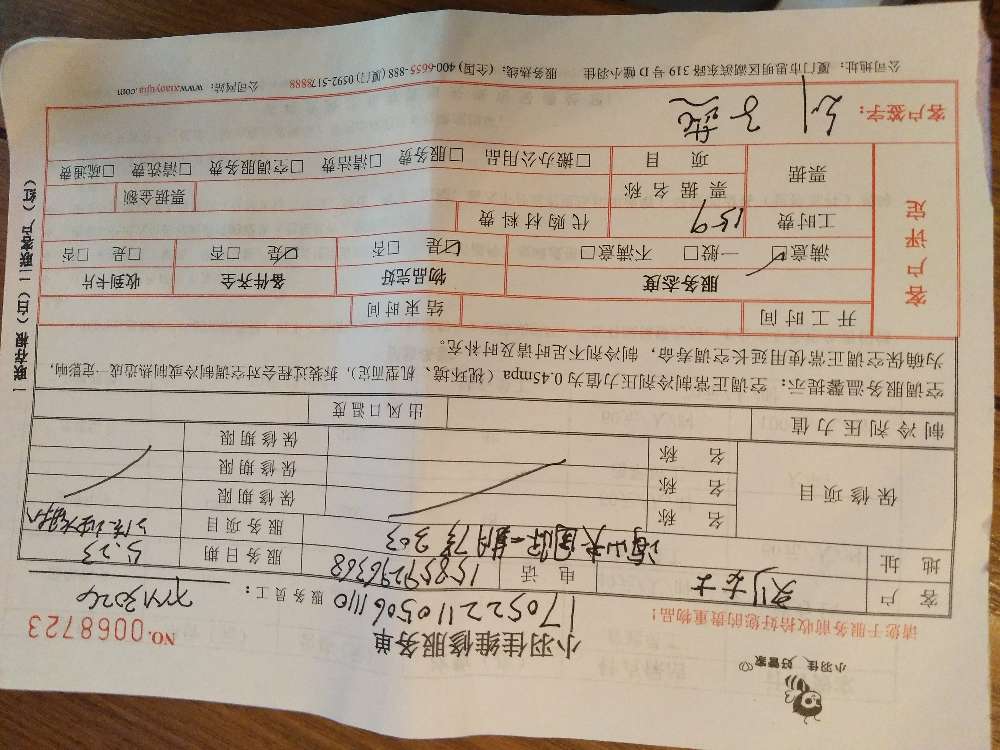 小羽佳 好管家
小羽佳维修服务单
NO.0068723
请您于服务前收拾好您的贵重物品!
170522110506110
服务员工: XM3026
客户 刘女士 电话 15859296368 服务日期 5.23
地址 303 服务项目
保修项目 名称 保修期限
名称 保修期限
名称 保修期限
制冷剂压力值 出风口温度
空调服务温馨提示: 空调正常制冷剂压力值为0.45mpa (视环境、机型而定), 拆装过程会对空调制冷或制热造成一定影响,
为确保空调正常使用延长空调寿命, 制冷剂不足时请及时补充。
客户评定
开工时间 结束时间
服务态度 物品完好 备件齐全 收到卡片
满意☑ 一般□ 不满意□ 是☑ 否□ 是☑ 否□ 是□ 否□
工时费 159 代购材料费
票据 票据名称 票据金额
项目 □搬办公用品 □服务费 □清洁费 □空调服务费 □清洗费 □疏通费
客户签字:
公司地址: 厦门市思明区湖滨东路319号D幢小羽佳 服务热线: (全国) 400-6655-888 (厦门) 0592-5178888 公司网站: www.xiaoyujia.com
一联存根(白) 二联客户(红)